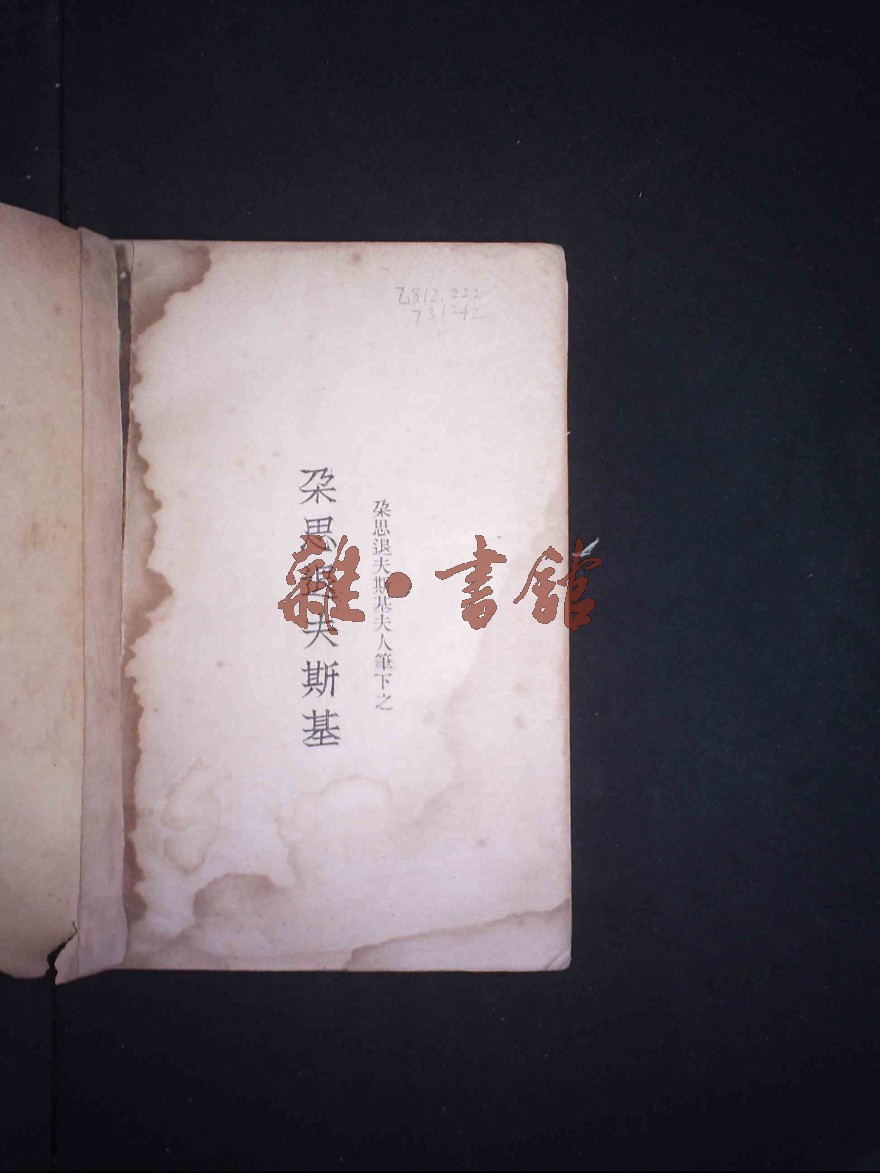 Z812.222
731242
朶思退夫斯基夫人筆下之
朶思退夫斯基
雜·書館